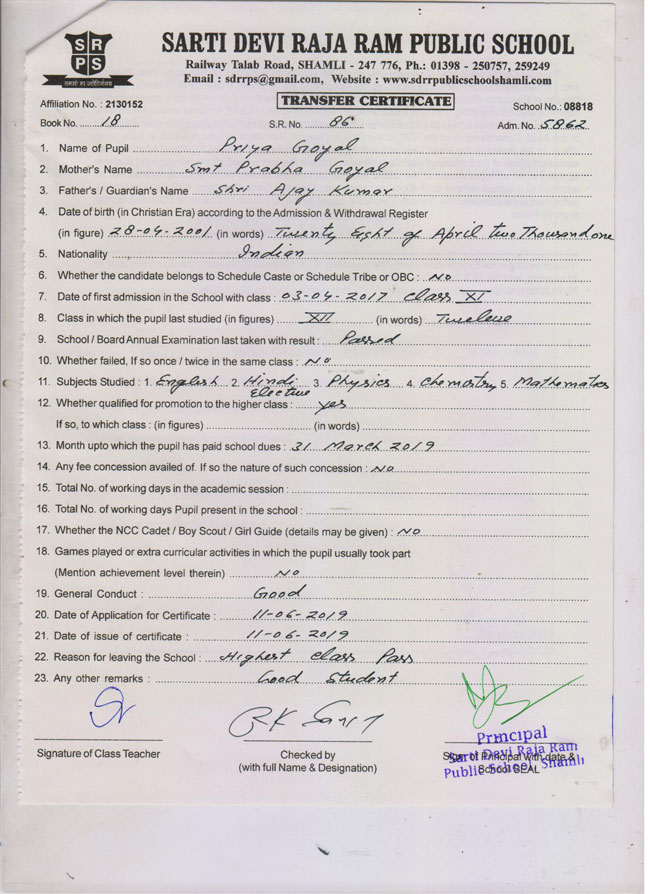 SRPS
SARTI DEVI RAJA RAM PUBLIC SCHOOL
Railway Talab Road, SHAMLI - 247 776, Ph.: 01398 - 250757, 259249
Email : sdrrps@gmail.com, Website : www.sdrrpublicschoolshamli.com
Affiliation No. : 2130152 TRANSFER CERTIFICATE School No.: 08818
Book No. 18 S.R. No. 86 Adm. No. 5862
1. Name of Pupil Priya Goyal
2. Mother's Name Smt Prabha Goyal
3. Father's / Guardian's Name Shri Ajay Kumar
4. Date of birth (in Christian Era) according to the Admission & Withdrawal Register
(in figure) 28-04-2001 (in words) Twenty Eight of April two Thousand one
5. Nationality Indian
6. Whether the candidate belongs to Schedule Caste or Schedule Tribe or OBC : No
7. Date of first admission in the School with class : 03-04-2017 Class XI
8. Class in which the pupil last studied (in figures) XII (in words) Twelve
9. School / Board Annual Examination last taken with result : Passed
10. Whether failed, If so once / twice in the same class : No
11. Subjects Studied : 1. English 2. Hindi Elective 3. Physics 4. Chemistry 5. Mathematics
12. Whether qualified for promotion to the higher class : yes
If so, to which class : (in figures) (in words)
13. Month upto which the pupil has paid school dues : 31 March 2019
14. Any fee concession availed of. If so the nature of such concession : No
15. Total No. of working days in the academic session :
16. Total No. of working days Pupil present in the school :
17. Whether the NCC Cadet / Boy Scout / Girl Guide (details may be given) : No
18. Games played or extra curricular activities in which the pupil usually took part
(Mention achievement level therein) No
19. General Conduct : Good
20. Date of Application for Certificate : 11-06-2019
21. Date of issue of certificate : 11-06-2019
22. Reason for leaving the School : Highest Class Pass
23. Any other remarks : Good Student
Principal
Sarti Devi Raja Ram
Public School, Shamli
Signature of Class Teacher
Checked by
(with full Name & Designation)
Sign of Principal with date &
School SEAL